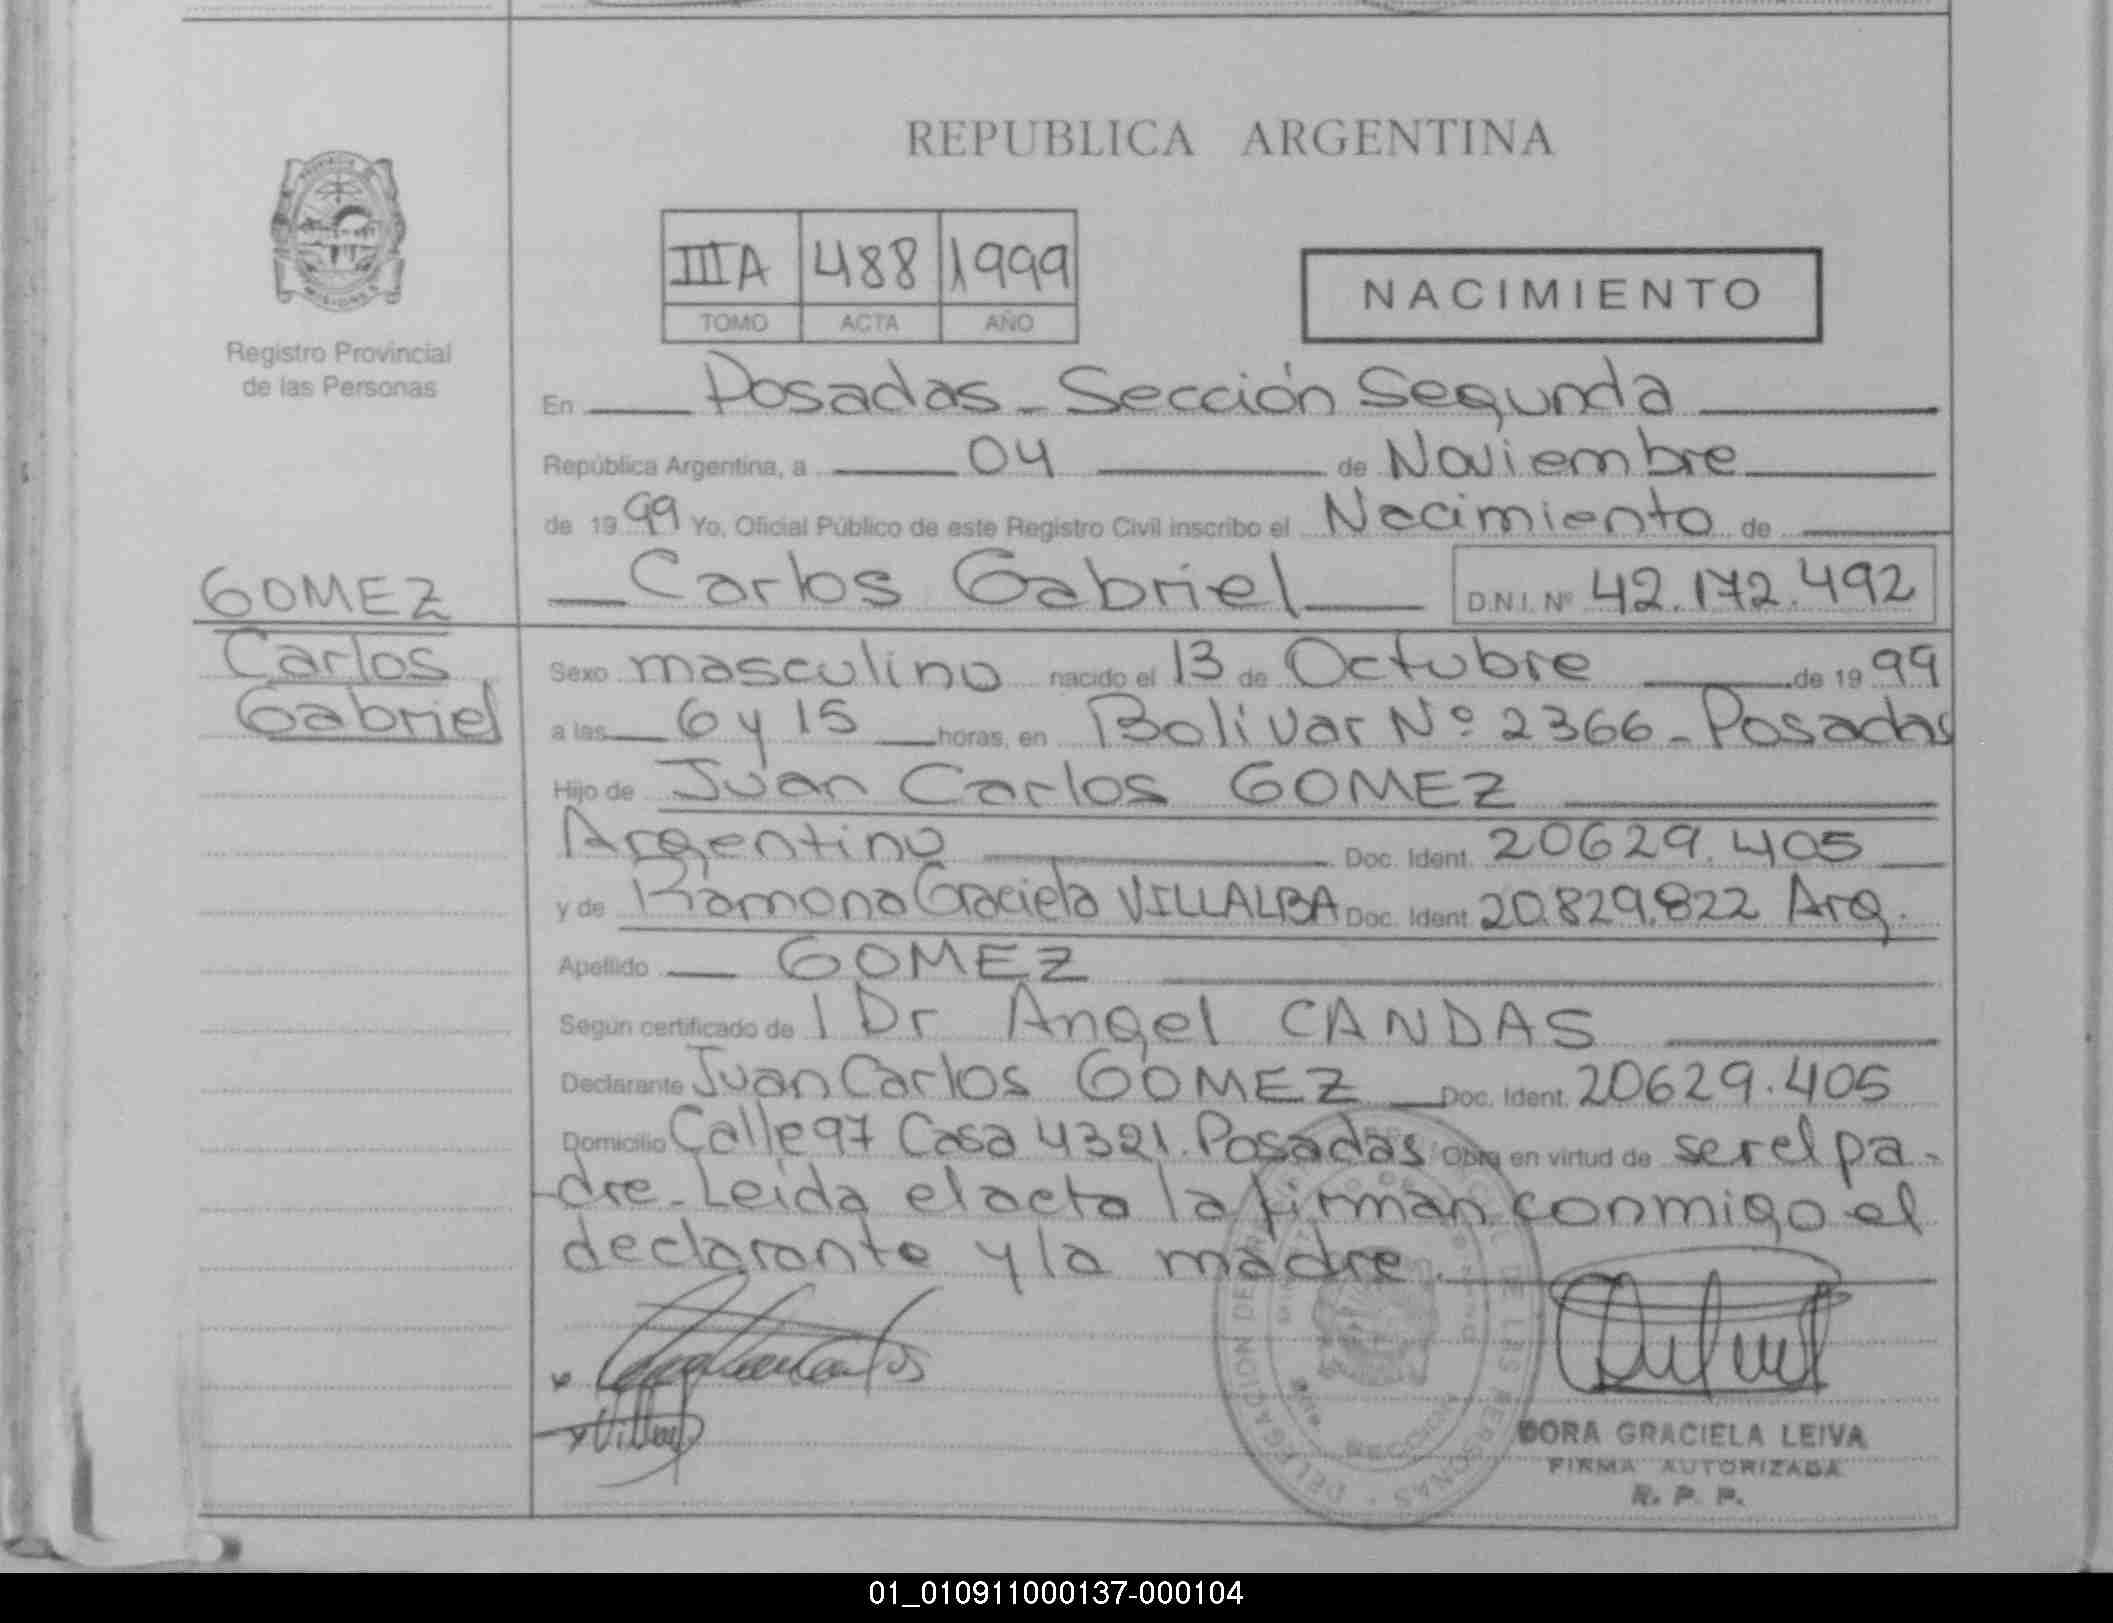 REPUBLICA ARGENTINA
IIIA 488 1999
TOMO ACTA AÑO
NACIMIENTO
Registro Provincial
de las Personas
En Posadas - Sección Segunda
República Argentina, a 04 de Noviembre
de 1999 Yo, Oficial Público de este Registro Civil inscribo el Nacimiento de
Carlos Gabriel D.N.I. Nº 42.172.492
GOMEZ
Carlos
Gabriel
Sexo masculino nacido el 13 de Octubre de 1999
a las 6 y 15 horas, en Bolivar Nº 2366 - Posadas
Hijo de Juan Carlos GOMEZ
Argentino Doc. Ident. 20629.405
y de Ramona Graciela VILLALBA Doc. Ident. 20.829.822 Arg.
Apellido GOMEZ
Según certificado de l Dr Angel CANDAS
Declarante Juan Carlos GOMEZ Doc. Ident. 20629.405
Domicilio Calle 97 Casa 4321. Posadas Obra en virtud de ser el pa-
dre - Leida el acta la firman conmigo el
declarante y la madre.
DORA GRACIELA LEIVA
FIRMA AUTORIZADA
R. P. P.
01_010911000137-000104